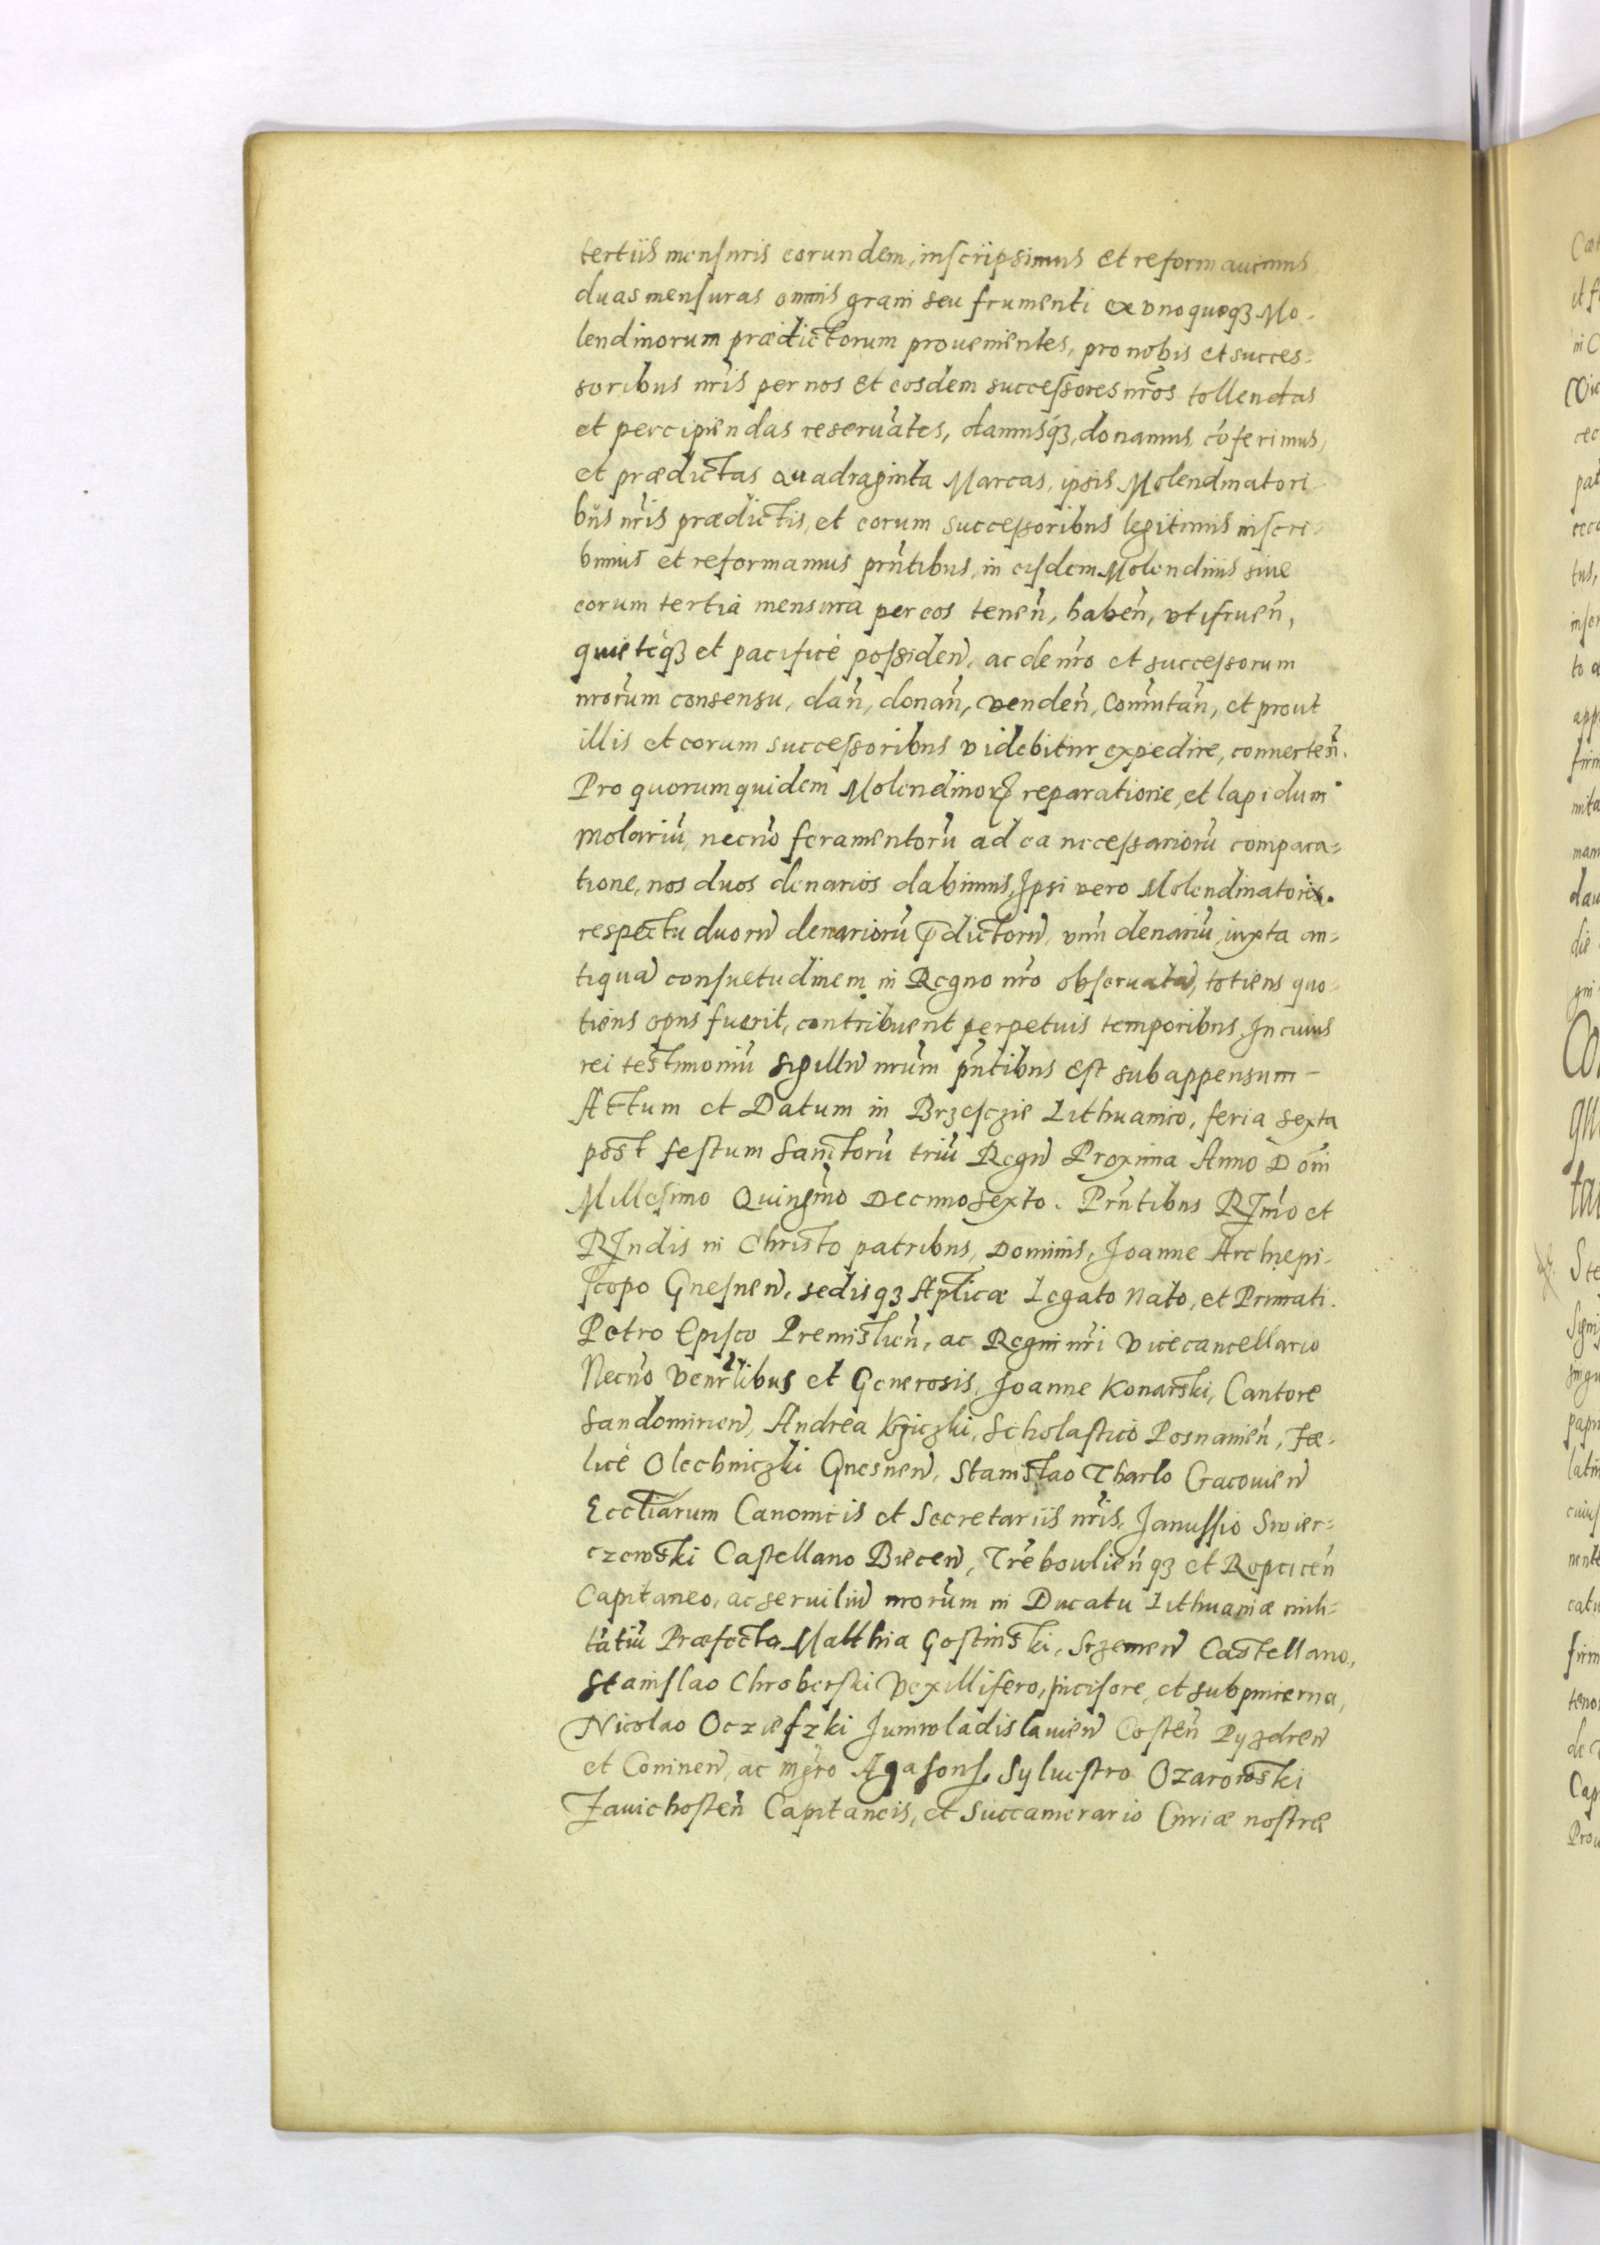 tertiis mensuris eorundem, inscripsimus et reformauimus
duas mensuras omnis grani seu frumenti ex vnoquoqȝ Mo-
lendinorum prædictorum prouenientes, pro nobis et succes-
soribus nr̃is per nos et eosdem successores nr̃os tollendas
et percipiendas reseruates, damusqȝ, donamus cõferimus,
et prædictas Quadraginta Marcas, ipsis Molendinatori
bus nr̃is prædictis, et eorum successoribus legitimis inscri-
bimus et reformamus prñtibus, in eisdem Molendinis siue
eorum tertia mensura per eos teneñ, habeñ, vtifrueñ,
quietèqȝ et pacificè possideñ, ac de nr̃o et successorum
nrõrum consensu, dañ, donañ, vendeñ, Com̃utañ, et prout
illis et eorum successoribus videbitur expedire, conuerteñ.
Pro quorum quidem Molendinoꝝ reparatione, et lapidum
molariũ, necñõ feramentorũ ad ea necessariorũ compara-
tione, nos duos denarios dabimus, Ipsi vero Molendinatores
respectu duorũ denariorũ p̃dictorũ, vnũ denariũ, iuxta an-
tiquã consuetudinem in Regno nr̃o obseruatã, totiens quo-
tiens opus fuerit, contribuent perpetuis temporibus. In cuius
rei testimoniũ sigillũ nr̃um pñtibus est subappensum –
Actum et Datum in Brzesczie Lithuanico, feria sexta
post festum Sanctorũ triũ Regũ Proxima Anno Dõni
Millesimo Quingmõ Decimosexto. Prñtibus Rmõ et
Rndis in Christo patribus, Dominis, Joanne Archiepi-
scopo Gnesneñ, sedisqȝ Aplicæ Legato Nato, et Primati.
Petro Episco Premislieñ, ac Regni nr̃i Vicecancellario
Necñõ Venrlibus et Generosis, Joanne Konarski, Cantore
Sandomirieñ, Andrea Krziczki, Scholastico Posnanieñ, Fæ-
licè Olechniczki Gnesneñ, Stanislao Tharlo Cracouieñ
Eccliarum Canonicis et Secretariis nr̃is, Janussio Swier-
czewski Castellano Bieceñ, Trẽboulieñqȝ et Ropciceñ
Capitaneo, ac seruiliũ nrõrum in Ducatu Lithuaniæ mili-
tatiũ Præfecto Matthia Gostinski, Srzemeñ Castellano,
Stanislao Chroberski Vexillifero, Incisore, et subpincerna,
Nicolao Oczieszki Juniwladislauieñ Costeñ Pyzdreñ
et Conineñ, ac mgrõ Agasons, Syluestro Ozarowski
Zauichosteñ Capitaneis, et Succamerario Curiæ nostræ